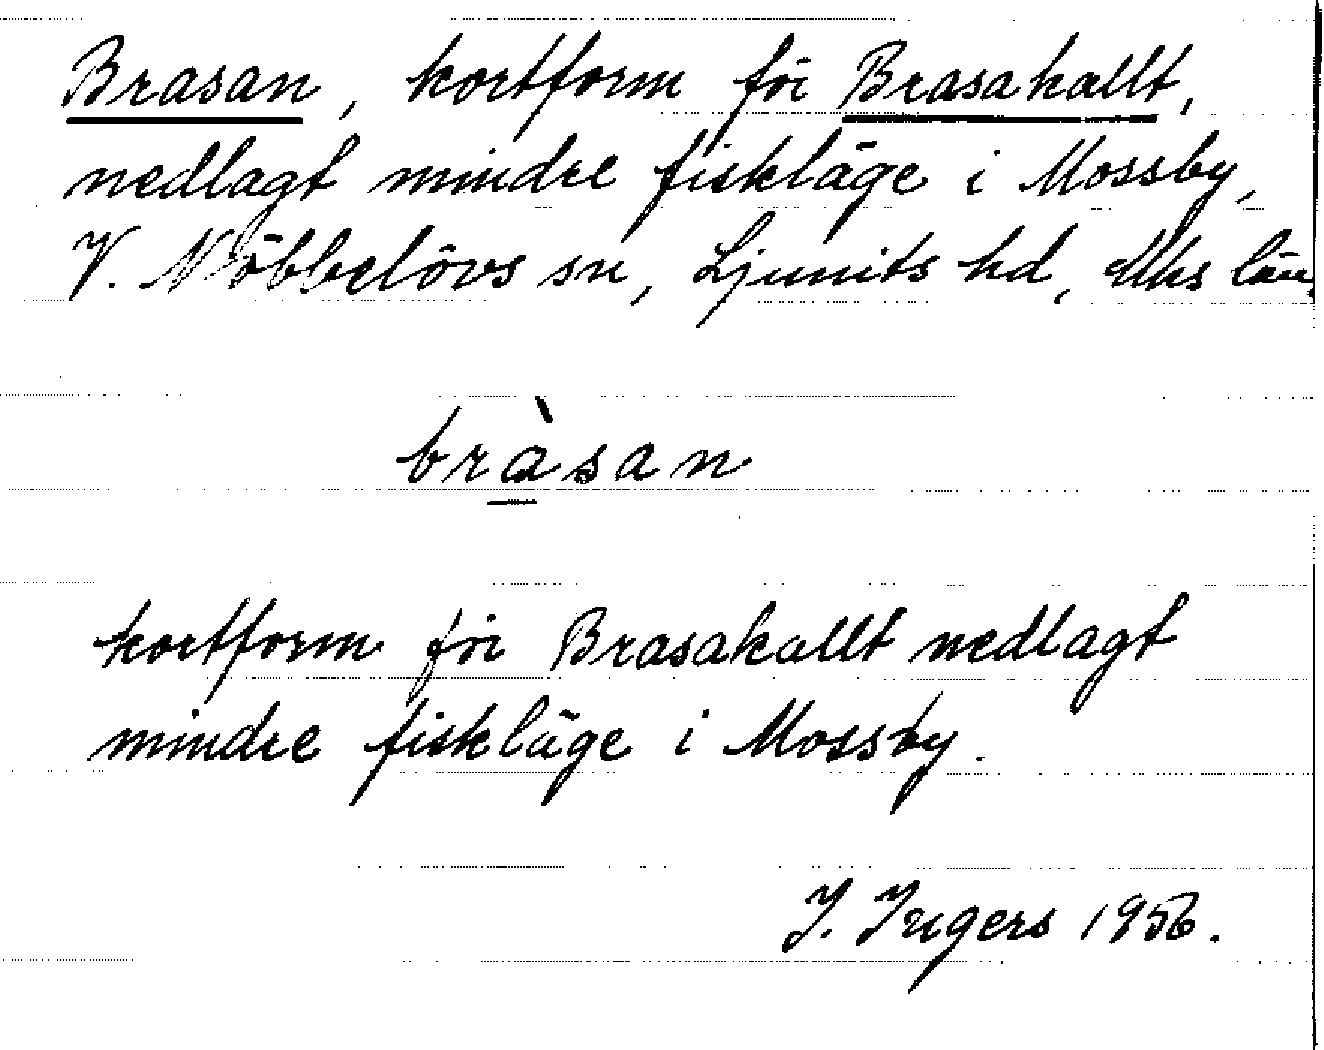 Brasan, kortform för Brasakallt,
nedlagt mindre fiskläge i Mossby,
V. Nöbbelövs sn, Ljunits hd, Mhs län.
bràsan
kortform för Brasakallt nedlagt
mindre fiskläge i Mossby.
I. Ingers 1956.